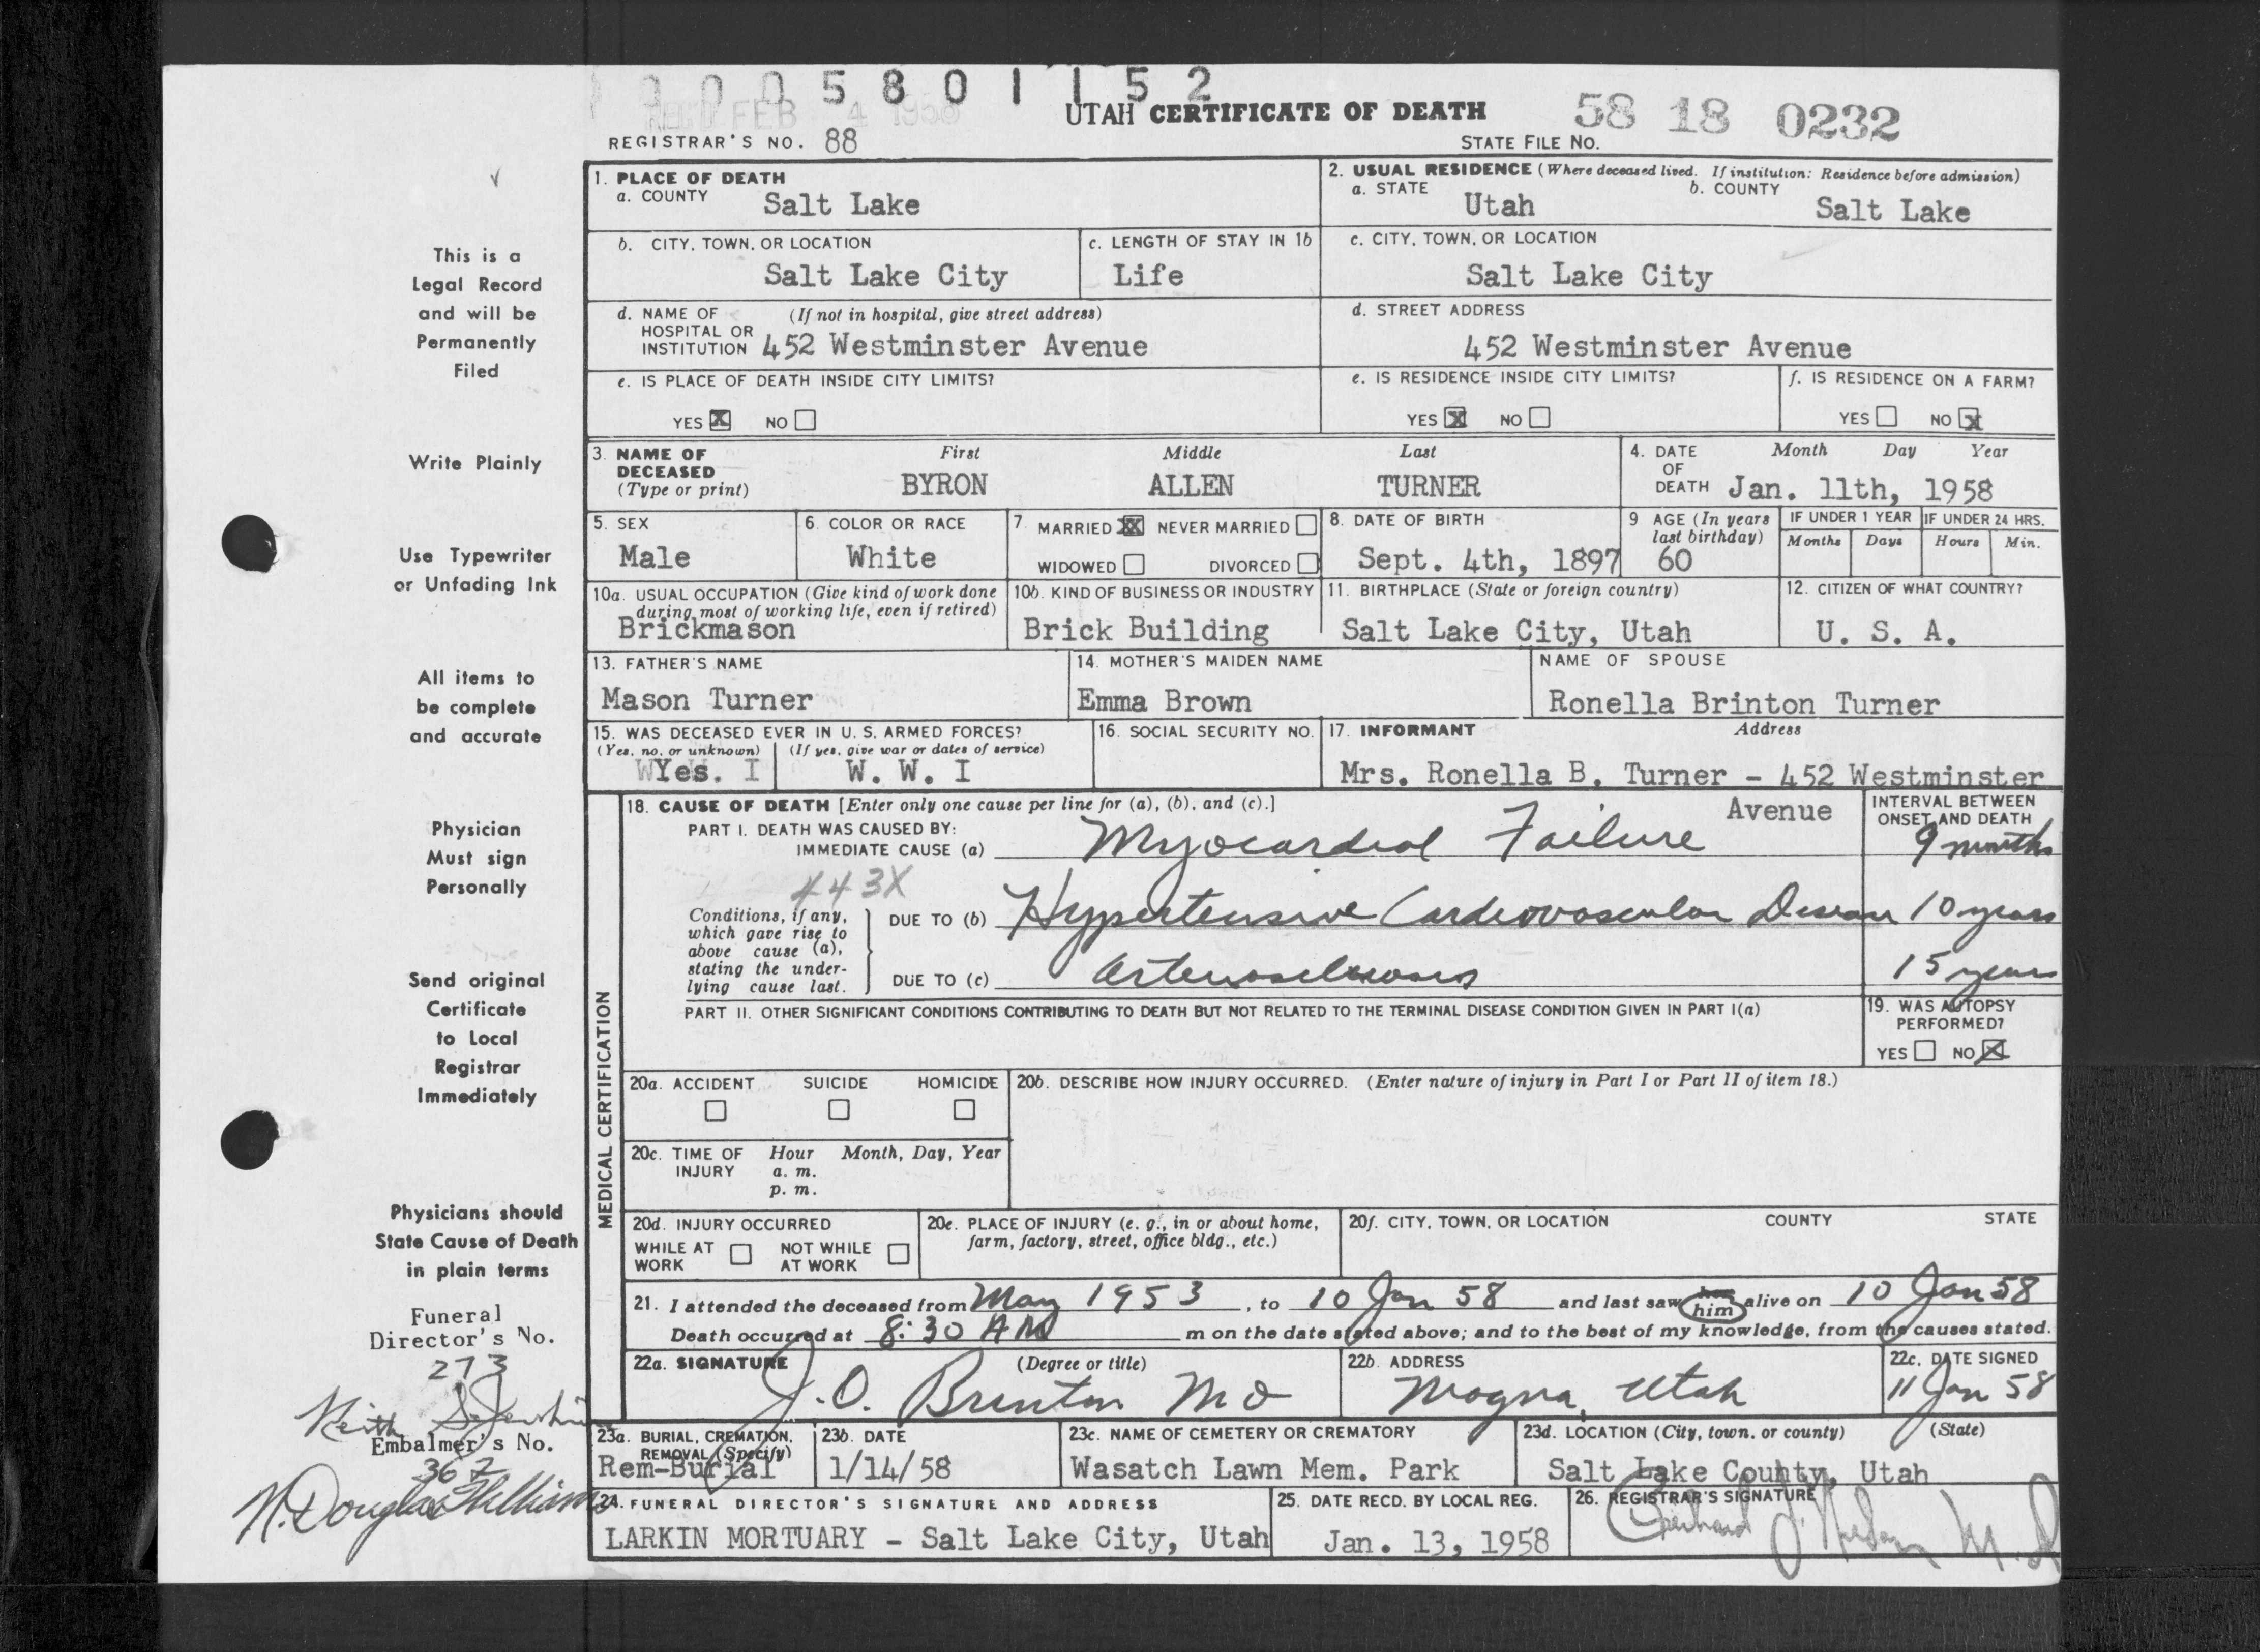 0 0 0 5 8 0 1 1 5 2
REC'D FEB 4 1958
UTAH CERTIFICATE OF DEATH 58 18 0232
REGISTRAR'S NO. 88 STATE FILE NO.
This is a
Legal Record
and will be
Permanently
Filed
Write Plainly
Use Typewriter
or Unfading Ink
All items to
be complete
and accurate
Physician
Must sign
Personally
Send original
Certificate
to Local
Registrar
Immediately
Physicians should
State Cause of Death
in plain terms
Funeral
Director's No.
273
Keith
Embalmer's No.
362
N. Douglas
1. PLACE OF DEATH
a. COUNTY Salt Lake
2. USUAL RESIDENCE (Where deceased lived. If institution: Residence before admission)
a. STATE Utah b. COUNTY Salt Lake
b. CITY, TOWN, OR LOCATION Salt Lake City
c. LENGTH OF STAY IN 1b Life
c. CITY, TOWN, OR LOCATION Salt Lake City
d. NAME OF HOSPITAL OR INSTITUTION (If not in hospital, give street address) 452 Westminster Avenue
d. STREET ADDRESS 452 Westminster Avenue
e. IS PLACE OF DEATH INSIDE CITY LIMITS?
YES X NO
e. IS RESIDENCE INSIDE CITY LIMITS?
YES X NO
f. IS RESIDENCE ON A FARM?
YES NO X
3. NAME OF DECEASED (Type or print) First Middle Last
BYRON ALLEN TURNER
4. DATE OF DEATH Month Day Year
Jan. 11th, 1958
5. SEX Male
6. COLOR OR RACE White
7. MARRIED XX NEVER MARRIED
WIDOWED DIVORCED
8. DATE OF BIRTH Sept. 4th, 1897
9 AGE (In years last birthday) 60
IF UNDER 1 YEAR Months Days
IF UNDER 24 HRS. Hours Min.
10a. USUAL OCCUPATION (Give kind of work done during most of working life, even if retired)
Brickmason
10b. KIND OF BUSINESS OR INDUSTRY
Brick Building
11. BIRTHPLACE (State or foreign country)
Salt Lake City, Utah
12. CITIZEN OF WHAT COUNTRY?
U. S. A.
13. FATHER'S NAME
Mason Turner
14. MOTHER'S MAIDEN NAME
Emma Brown
NAME OF SPOUSE
Ronella Brinton Turner
15. WAS DECEASED EVER IN U. S. ARMED FORCES?
(Yes, no, or unknown) (If yes, give war or dates of service)
Yes. W. W. I
16. SOCIAL SECURITY NO.
17. INFORMANT Address
Mrs. Ronella B. Turner - 452 Westminster
Avenue
MEDICAL CERTIFICATION
18. CAUSE OF DEATH [Enter only one cause per line for (a), (b), and (c).]
INTERVAL BETWEEN ONSET AND DEATH
PART I. DEATH WAS CAUSED BY:
IMMEDIATE CAUSE (a) Myocardial Failure 9 months
443X
Conditions, if any, which gave rise to above cause (a), stating the underlying cause last.
DUE TO (b) Hypertensive Cardiovascular Disease 10 years
DUE TO (c) Arteriosclerosis 15 years
PART II. OTHER SIGNIFICANT CONDITIONS CONTRIBUTING TO DEATH BUT NOT RELATED TO THE TERMINAL DISEASE CONDITION GIVEN IN PART I(a)
19. WAS AUTOPSY PERFORMED?
YES NO X
20a. ACCIDENT SUICIDE HOMICIDE
20b. DESCRIBE HOW INJURY OCCURRED. (Enter nature of injury in Part I or Part II of item 18.)
20c. TIME OF INJURY Hour Month, Day, Year
a. m.
p. m.
20d. INJURY OCCURRED
WHILE AT WORK NOT WHILE AT WORK
20e. PLACE OF INJURY (e. g., in or about home, farm, factory, street, office bldg., etc.)
20f. CITY, TOWN, OR LOCATION COUNTY STATE
21. I attended the deceased from May 1953, to 10 Jan 58 and last saw her him alive on 10 Jan 58
Death occurred at 8:30 AM m on the date stated above; and to the best of my knowledge, from the causes stated.
22a. SIGNATURE (Degree or title)
J. O. Brinton MD
22b. ADDRESS
Magna, Utah
22c. DATE SIGNED
11 Jan 58
23a. BURIAL, CREMATION, REMOVAL (Specify)
Rem-Burial
23b. DATE
1/14/58
23c. NAME OF CEMETERY OR CREMATORY
Wasatch Lawn Mem. Park
23d. LOCATION (City, town, or county) (State)
Salt Lake County, Utah
24. FUNERAL DIRECTOR'S SIGNATURE AND ADDRESS
LARKIN MORTUARY - Salt Lake City, Utah
25. DATE RECD. BY LOCAL REG.
Jan. 13, 1958
26. REGISTRAR'S SIGNATURE
M.D